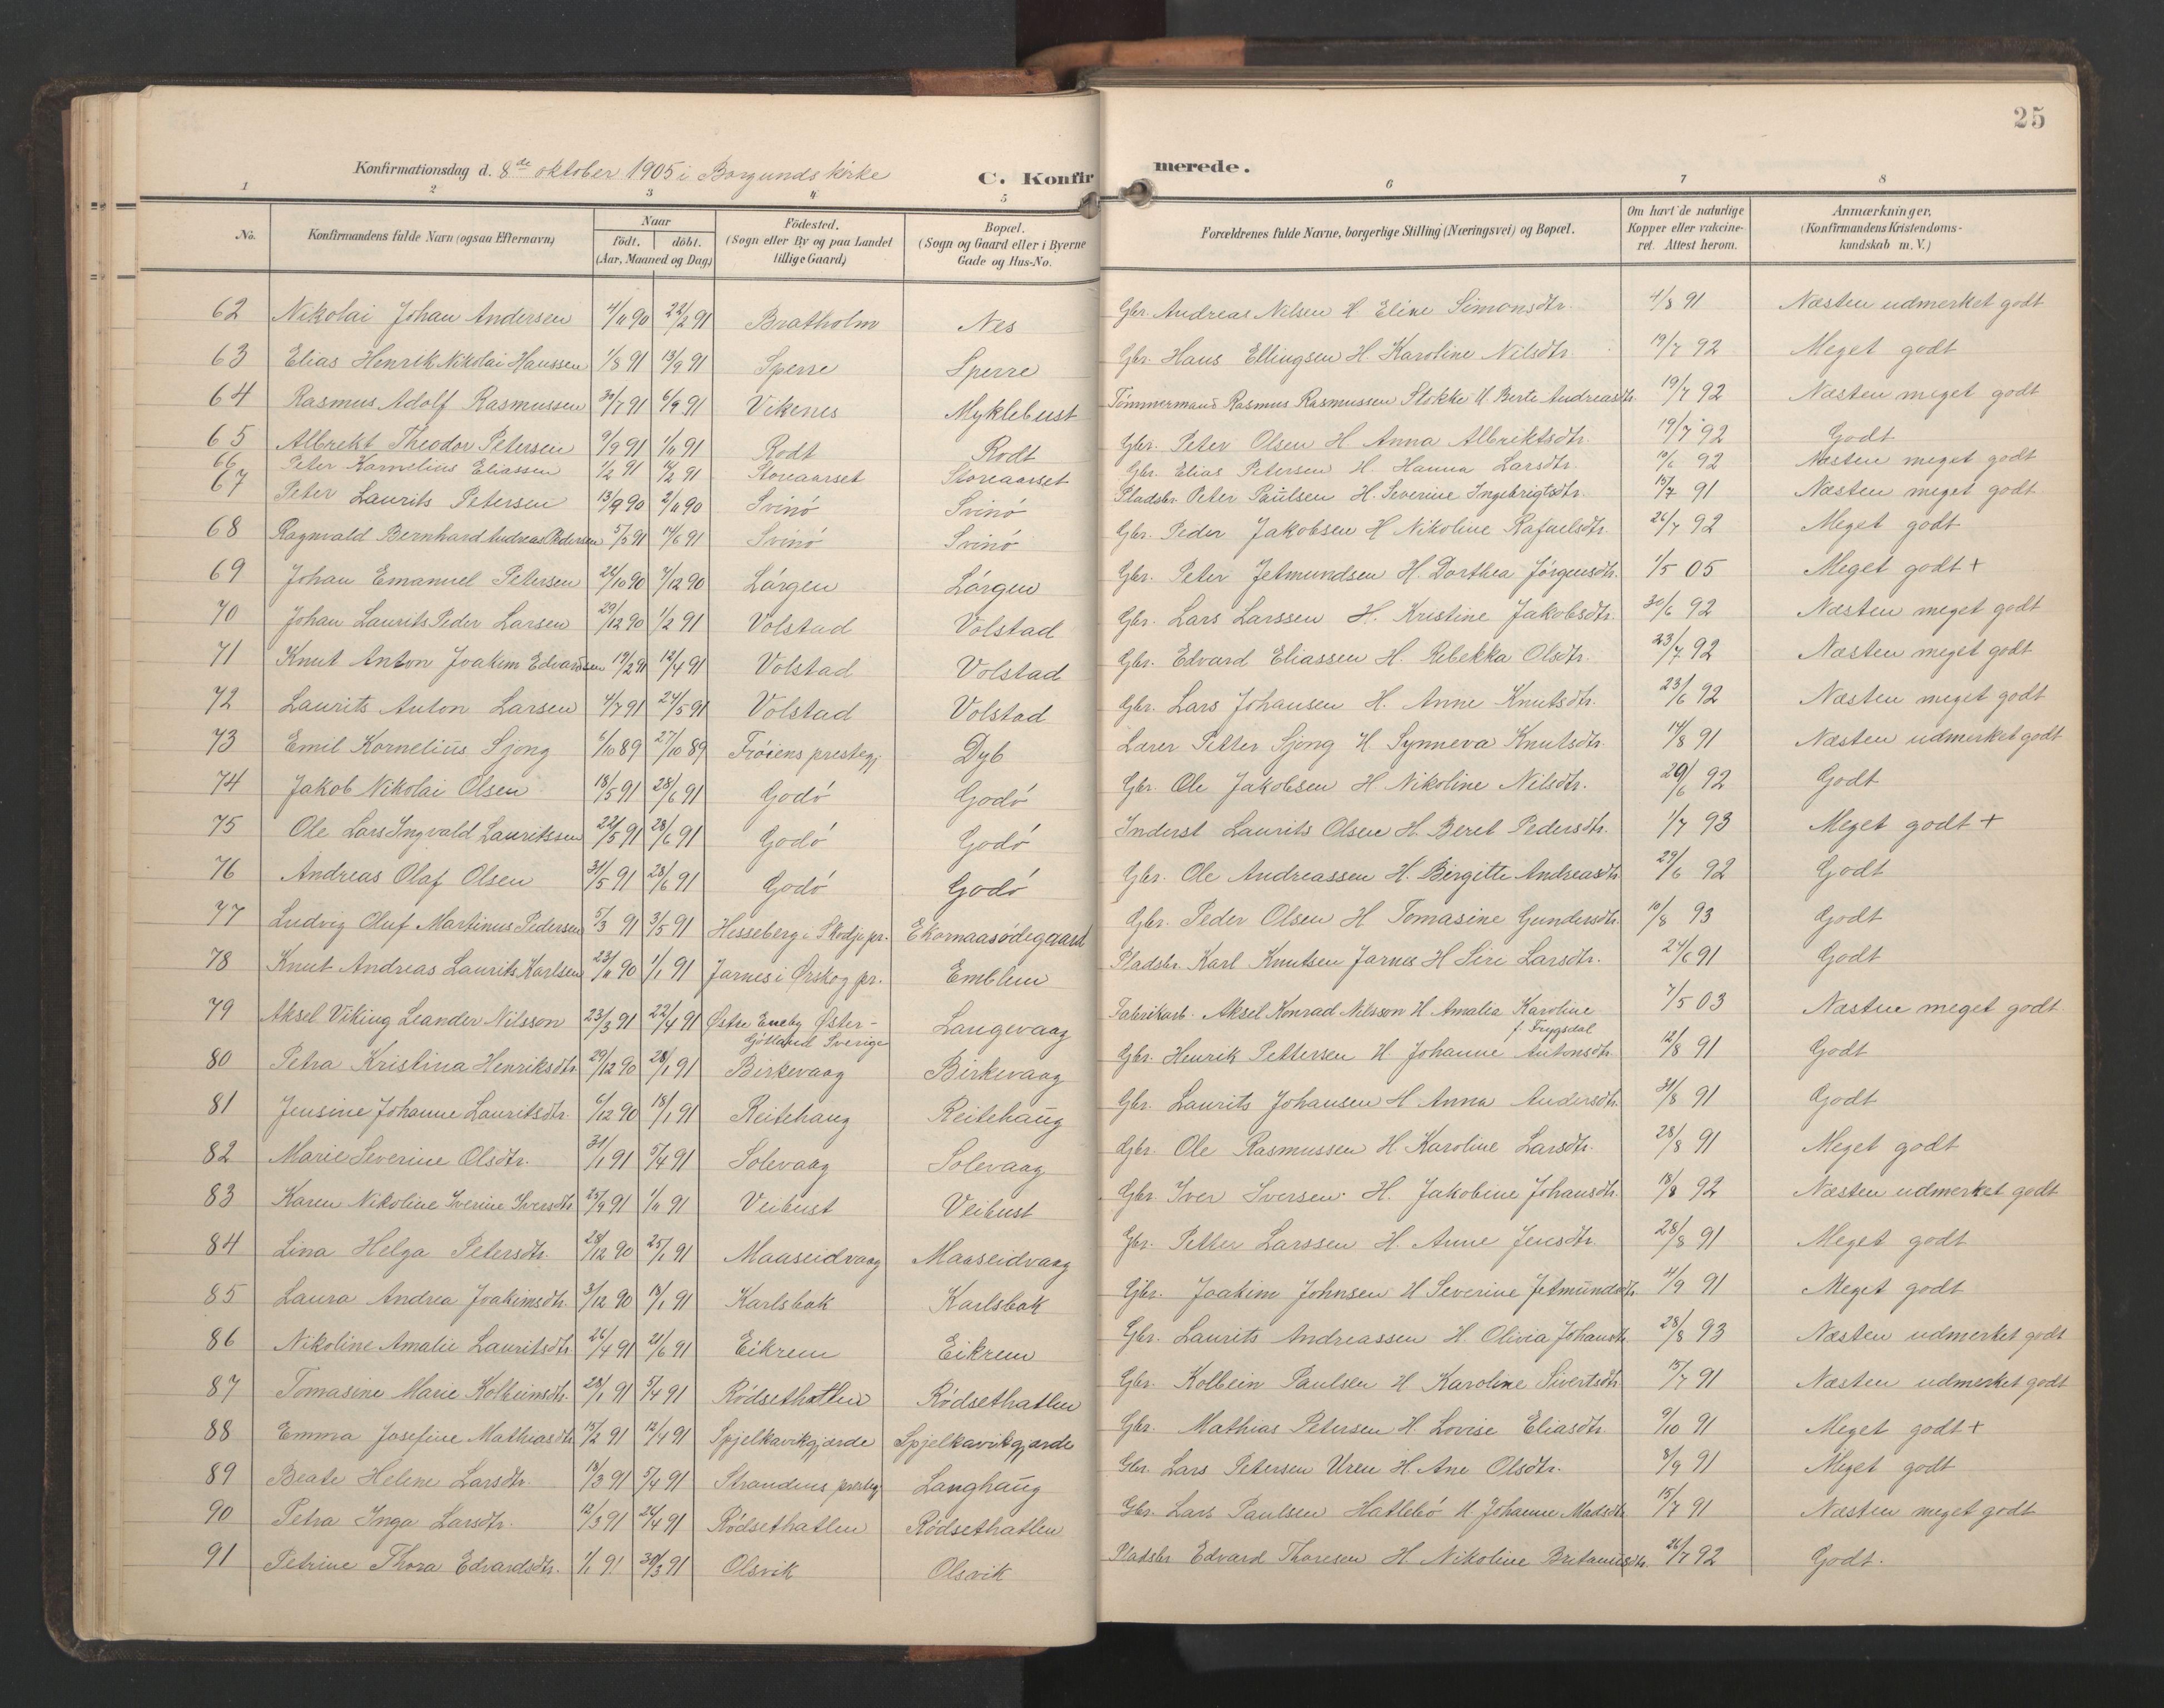 25
Konfirmationsdag d. 8de oktober 1905 i Borgunds kirke
C. Konfirmerede.
1 2 3 4 5 6 7 8
No. | Konfirmandens fulde Navn (ogsaa Efternavn) | Naar födt. | döbt. (Aar, Maaned og Dag) | Födested. (Sogn eller By og paa Landet tillige Gaard) | Bopæl. (Sogn og Gaard eller i Byerne Gade og Hus-No. | Forældrenes fulde Navne, borgerlige Stilling (Næringsvei) og Bopæl. | Om havt de naturlige Kopper eller vakcineret. Attest herom. | Anmærkninger, (Konfirmandens Kristendomskundskab m. V.)
62 Nikolai Johan Andersen 4/11 90 22/2 91 Bratholm Nes Gbr. Andreas Nilsen H Eline Simonsdtr. 4/8 91 Næsten udmerket godt
63 Elias Henrik Nikolai Hanssen 1/8 91 13/9 91 Sperre Sperre Gbr. Hans Ellingsen H. Karoline Nilsdtr. 19/7 92 Meget godt
64 Rasmus Adolf Rasmussen 30/7 91 6/9 91 Vikenes Myklebust Tömmermand Rasmus Rasmussen Stokke H. Berte Andreasdtr. 19/7 92 Næsten meget godt
65 Albrekt Theodor Petersen 9/9 91 1/11 91 Rodt Rodt Gbr. Peter Olsen H Anna Albriktsdtr. 19/7 92 Godt
66 Peter Kornelius Eliassen 1/2 91 /2 91 Storeaarset Storeaarset Gbr. Elias Petersen H. Hanna Larsdtr. 10/6 92 Næsten meget godt
67 Peter Laurits Petersen 13/9 90 2/11 90 Svinö Svinö Pladsbr. Peter Paulsen H. Severine Ingebrigtsdtr. 15/7 91 Næsten meget godt
68 Ragnvald Bernhard Andreas Pedersen 5/5 91 14/6 91 Svinö Svinö Gbr. Peder Jakobsen H Nikoline Rafaelsdtr. 26/7 92 Meget godt
69 Johan Emanuel Petersen 22/10 90 7/12 90 Lörgen Lörgen Gbr. Peter Jetmundsen H. Dorthea Jörgensdtr. 1/5 05 Meget godt +
70 Johan Laurits Peder Larsen 29/12 90 1/2 91 Volstad Volstad Gbr. Lars Larssen H. Kristine Jakobsdtr. 30/6 92 Næsten meget godt
71 Knut Anton Joakim Edvardsen 19/2 91 12/4 91 Volstad Volstad Gbr. Edvard Eliassen H. Rebekka Olsdtr. 23/7 92 Næsten meget godt
72 Laurits Anton Larsen 4/4 91 24/5 91 Volstad Volstad Gbr. Lars Johansen H. Anne Knutsdtr. 23/6 92 Næsten meget godt
73 Emil Kornelius Sjong 6/10 89 27/10 89 Fröiens prestegj. Dyb Lærer Petter Sjong H Synneva Knutsdtr. 14/8 91 Næsten udmerket godt
74 Jakob Nikolai Olsen 18/5 91 28/6 91 Godö Godö Gbr. Ole Jakobsen H Nikoline Nilsdtr. 29/6 92 Godt
75 Ole Lars Ingvald Lauritssen 22/5 91 28/6 91 Godö Godö Inderst Laurits Olsen H. Beret Pedersdtr. 1/7 93 Meget godt +
76 Andreas Olaf Olsen 31/5 91 28/6 91 Godö Godö Gbr. Ole Andreassen H. Birgitte Andreasdtr 29/6 92 Godt
77 Ludvig Oluf Martinus Pedersen 5/3 91 3/5 91 Hesseberg i Skodje pr. Ekornaasödegaard Gbr. Peder Olsen H Tomasine Gundersdtr. 10/8 93 Godt
78 Knut Andreas Laurits Karlsen 23/11 90 1/1 91 Jarnes i Ørskog pr. Emblem Pladsbr. Karl Knutsen Jarnes H Siri Larsdtr. 24/6 91 Godt
79 Aksel Viking Leander Nilsson 23/3 91 22/4 91 Østre Eneby Øster- Langevaag Fabrikarb. Aksel Konrad Nilsson H Amalia Karoline 7/5 03 Næsten meget godt
Götland Sverige f. Frygsdal
80 Petra Kristina Henriksdtr. 29/12 90 28/1 91 Birkevaag Birkevaag Gbr. Henrik Pettersen H. Johanne Antonsdtr. 12/8 91 Godt
81 Jensine Johanne Lauritsdtr. 6/12 90 18/1 91 Reitehaug Reitehaug Gbr. Laurits Johansen H Anna Andersdtr. 31/8 91 Godt
82 Marie Severine Olsdtr. 31/1 91 5/4 91 Solevaag Solevaag Gbr. Ole Rasmussen H. Karoline Larsdtr. 28/8 91 Meget godt
83 Karen Nikoline Iverine Iversdtr 25/9 91 1/11 91 Veibust Veibust Gbr. Iver Iversen H. Jakobine Johansdtr. 18/8 92 Næsten udmerket godt
84 Lina Helga Petersdtr. 28/12 90 25/1 91 Maaseidvaag Maaseidvaag Gbr. Petter Larssen H Anne Jensdtr. 28/8 91 Meget godt
85 Laura Andrea Joakimsdtr. 3/12 90 18/1 91 Karlsbak Karlsbak Gbr. Joakim Johnsen H Severine Jetmundsdtr. 4/9 91 Meget godt
86 Nikoline Amalie Lauritsdtr 26/4 91 21/6 91 Eikrem Eikrem Gbr. Laurits Andreassen H. Olivia Johansdtr. 28/8 93 Næsten udmerket godt
87 Tomasine Marie Kolbeinsdtr. 28/1 91 5/4 91 Rödsethatlen Rödsethatlen Gbr. Kolbein Paulsen H Karoline Sivertsdtr. 15/7 91 Næsten udmerket godt
88 Emma Josefine Mathiasdtr 15/2 91 12/4 91 Spjelkavikgjærde Spjelkavikgjærde Gbr. Mathias Petersen H. Lovise Eliasdtr. 9/10 91 Meget godt +
89 Beate Helene Larsdtr. 18/3 91 5/4 91 Strandens presteg. Langhaug Gbr. Lars Petersen Uren H. Ane Olsdtr. 8/9 91 Meget godt
90 Petra Inga Larsdtr. 12/3 91 26/4 91 Rödsethatlen Rödsethatlen Gbr. Lars Paulsen Hatlebö H Johanne Madsdtr 15/7 91 Næsten meget godt
91 Petrine Thora Edvardsdtr. 1/1 91 30/3 91 Olsvik Olsvik Pladsbr Edvard Thoresen H. Nikoline Britaniusdtr. 26/7 92 Godt.